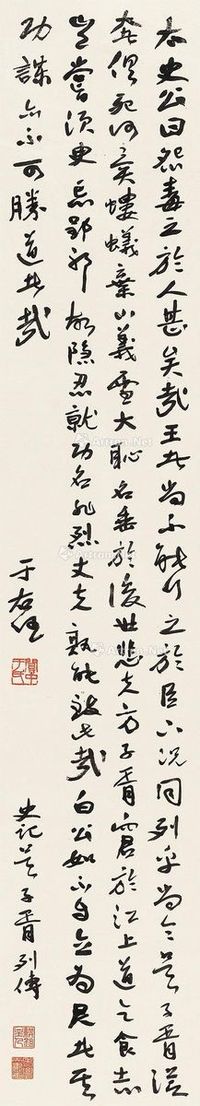 太史公曰怨毒之於人甚矣哉王者尚不能行之於臣下況同列乎尚令伍子胥從
奢俱死何異螻蟻棄小義雪大恥名垂於後世悲夫方子胥窘於江上道乞食志
豈嘗須臾忘郢邪故隱忍就功名非烈丈夫孰能致此哉白公如不自立為君者其
功謀亦不可勝道者哉
于右任
關中于氏
史記伍子胥列傳
Artron.Net